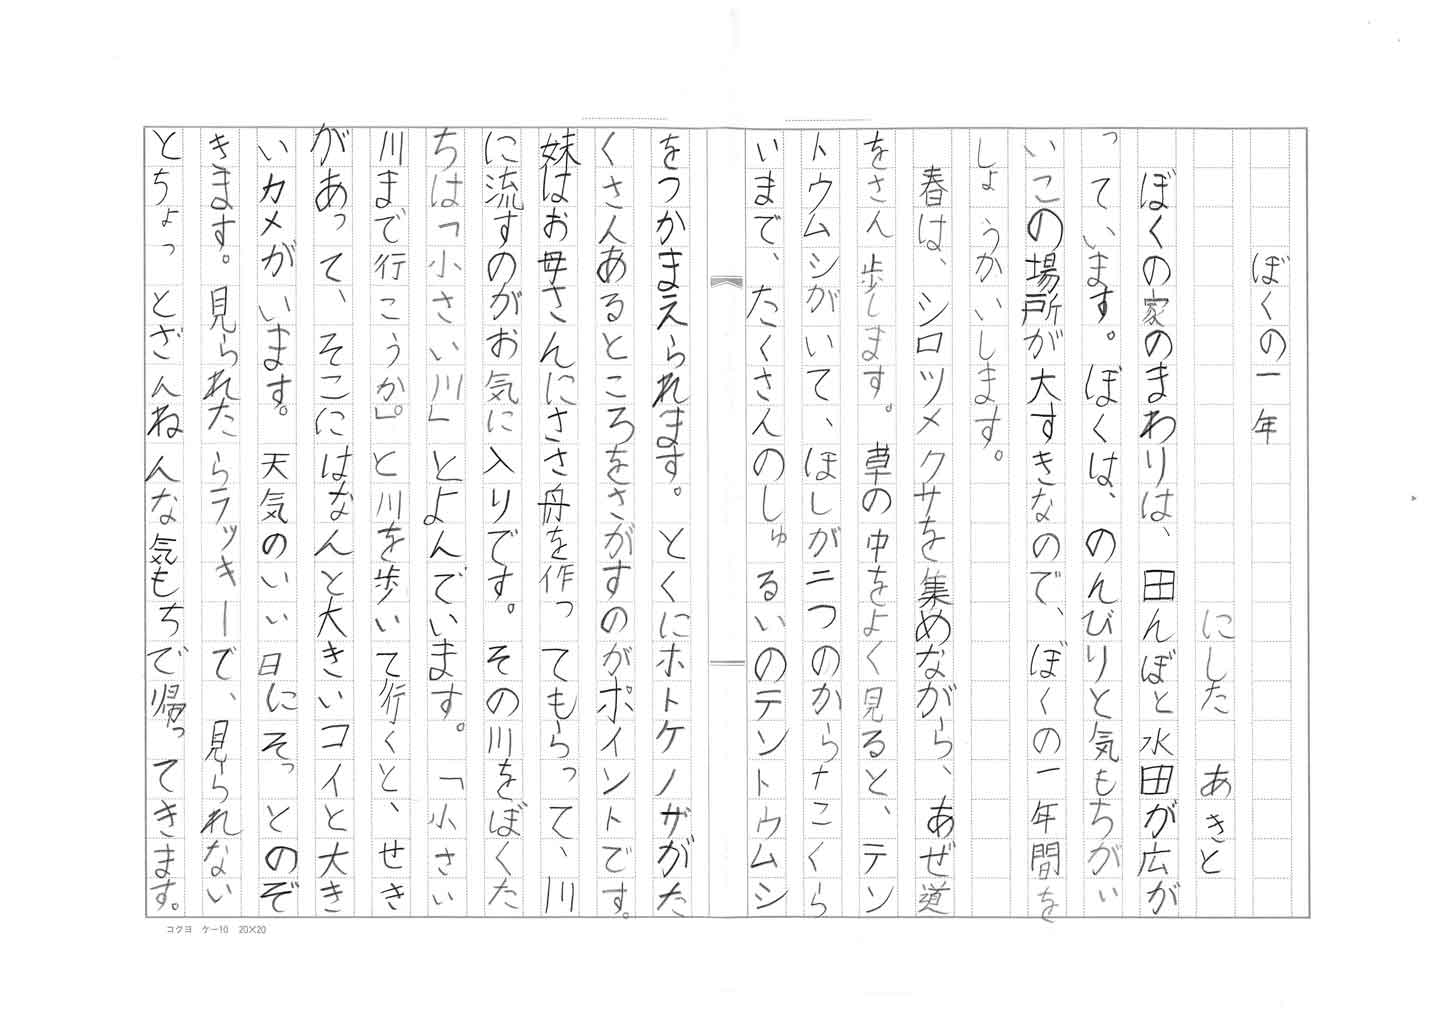 ぼくの一年
にした　あきと
ぼくの家のまわりは、田んぼと水田が広が
っています。ぼくは、のんびりと気もちがい
いこの場所が大すきなので、ぼくの一年間を
しょうかいします。
春は、シロツメクサを集めながら、あぜ道
をさん歩します。草の中をよく見ると、テン
トウムシがいて、ほしが二つのからナこくら
いまで、たくさんのしゅるいのテントウムシ
をつかまえられます。とくにホトケノザがた
くさんあるところをさがすのがポイントです。
妹はお母さんにささ舟を作ってもらって、川
に流すのがお気に入りです。その川をぼくた
ちは「小さい川」とよんでいます。「小さい
川まで行こうか。」と川を歩いて行くと、せき
があって、そこにはなんと大きいコイと大き
いカメがいます。天気のいい日にそっとのぞ
きます。見られたらラッキーで、見られない
とちょっとざんねんな気もちで帰ってきます。
コクヨ　ケー10　20×20